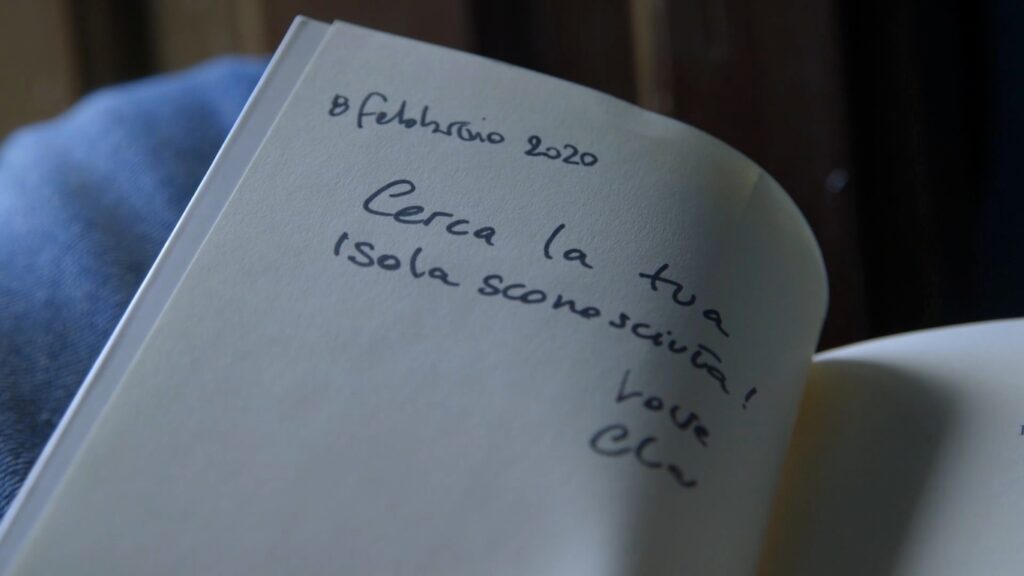 8 febbraio 2020
Cerca la tua
Isola sconosciuta!
Love
Cla